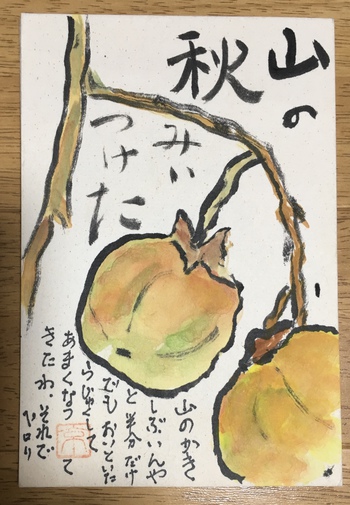 山の
秋
みい
つけた
山のかき
しぶいんや
と半分だけ
でもおいといた
らじゅくして
あまくなって
きたわ。それで
ペロリ